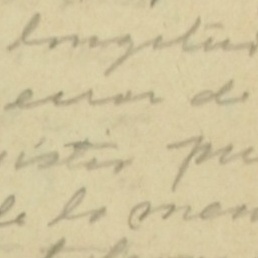 longitu
error de
istir pu
de lo man